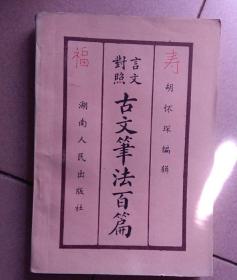 寿
胡怀琛编辑
言文
對照
古文筆法百篇
福
湖南人民出版社